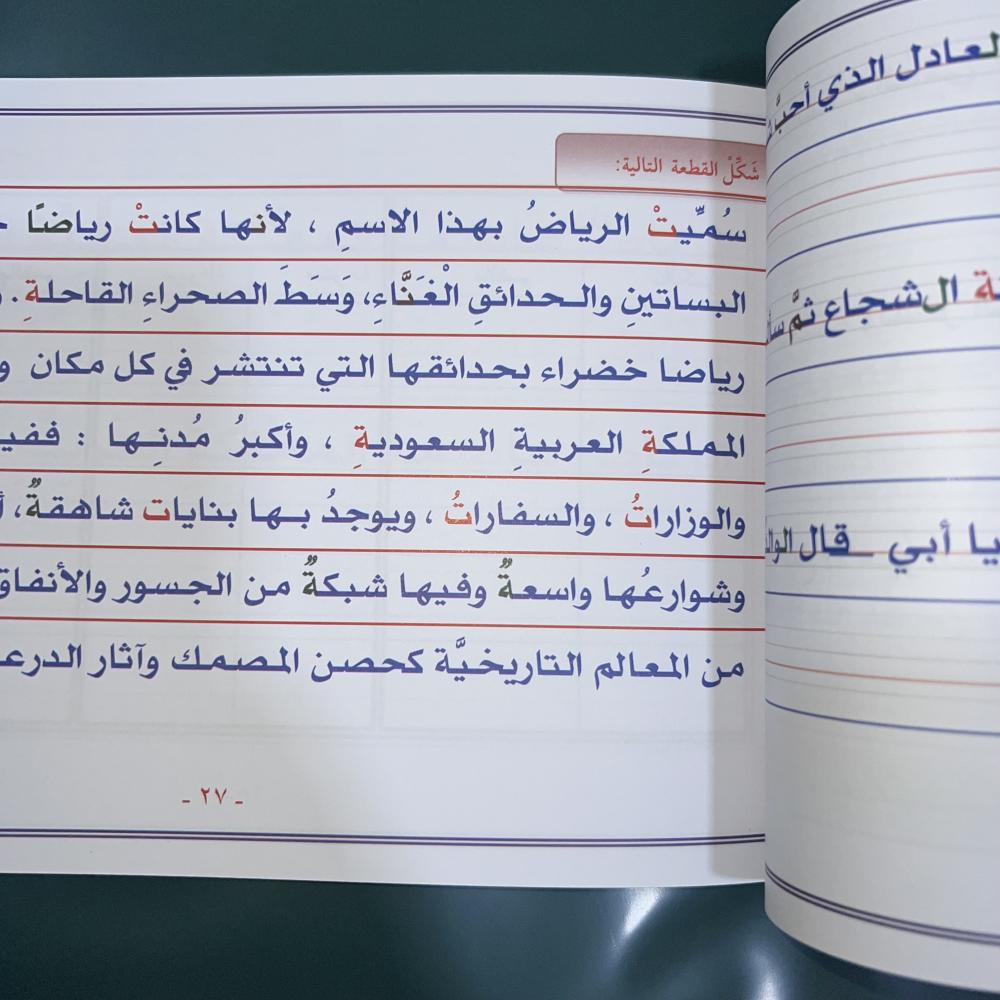 شَكِّلْ القطعة التالية:
سُمِّيتْ الرياضُ بهذا الاسمِ ، لأنها كانتْ رياضًا
البساتينِ والحدائقِ الْغَنَّاءِ، وَسَطَ الصحراءِ القاحلةِ .
رياضا خضراء بحدائقها التي تنتشر في كل مكان
المملكةِ العربيةِ السعوديةِ ، وأكبرُ مُدنِها :
والوزاراتُ ، والسفاراتُ ، ويوجدُ بها بنايات شاهقةٌ،
وشوارعُها واسعةٌ وفيها شبكةٌ من الجسور والأنفاق
من المعالم التاريخيَّة كحصن المصمك وآثار
- ٢٧ -
العادل الذي أحبَّ
الشجاع ثمَّ
يا أبي قال